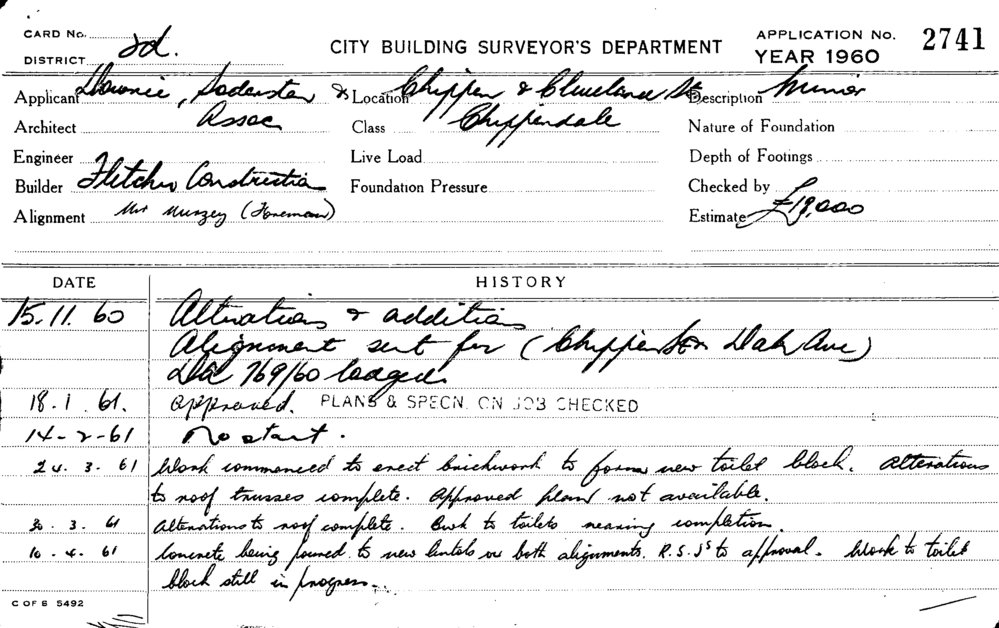 CARD No. 2d.
DISTRICT
CITY BUILDING SURVEYOR'S DEPARTMENT
APPLICATION No. 2741
YEAR 1960
Applicant Downie, Soderston &
Assoc
Location Chippen & Cleveland Sts
Description Minor
Architect
Class Chippendale
Nature of Foundation
Engineer
Live Load
Depth of Footings
Builder Fletcher Construction
Foundation Pressure
Checked by
Alignment Mr Murzey (Foreman)
Estimate £18,000
DATE HISTORY
15.11.60 Alterations & additions
Alignment sent for (Chippen St Dale Ave)
DA 769/60 lodged
18.1.61. approved. PLANS & SPECN. ON JOB CHECKED
14-2-61 No start.
24.3.61 Work commenced to erect brickwork to form new toilet block. Alterations
to roof trusses complete. Approved plans not available.
30.3.61 Alterations to roof complete. Bwk to toilets nearing completion.
10.4.61 Concrete being poured to new lintols on both alignments. R.S.Js to approval. Work to toilet
block still in progress.
C OF B 5492